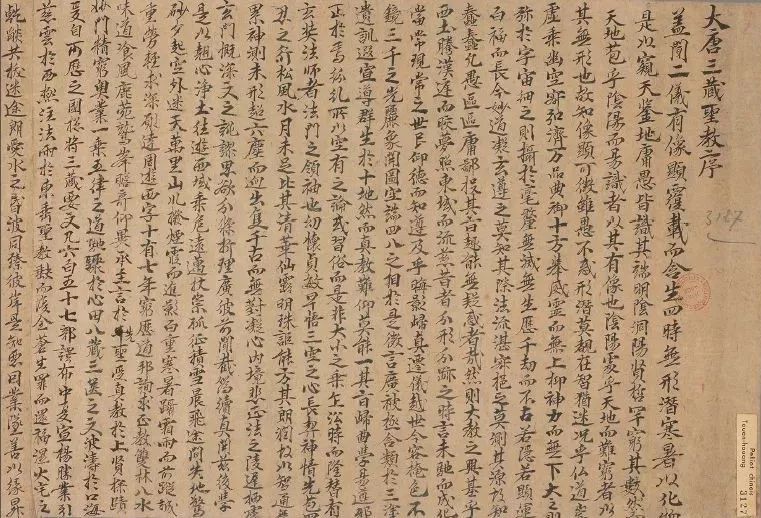 大唐三藏聖教之序
蓋聞二儀有像顯覆載而含生四時無形潛寒暑以化物
是以窺天鑒地庸愚皆識其端明陰洞陽賢哲罕窮其數然
天地苞乎陰陽而易識者以其有像也陰陽處乎天地而難窮者以
其無形也故知像顯可徵雖愚不惑形潛莫覩在智猶迷況乎仏道崇
虛乘幽控寂弘濟万品典御十方舉威靈而無上抑神力而無下大之則
弥於宇宙細之則攝於毫釐無滅無生歷千劫而不古若隱若顯運
百福而長今妙道凝玄遵之莫知其際法流湛寂挹之莫測其源故知
蠢蠢凡愚區區庸鄙投其旨趣能無疑惑者哉然則大教之興基乎
西土騰漢庭而皎夢照東域而流慈昔者分形分跡之時言未馳而成化
當常現常之世民仰德而知遵及乎晦影歸真遷儀越世金容掩色不
鏡三千之光麗象開圖空端四八之相於是微言廣被拯含類於三塗
遺訓遐宣導群生於十地然而真教難仰莫能一其旨歸曲學易遵邪
正於焉紛糺所以空有之論或習俗而是非大小之乘乍沿時而隆替有
玄奘法師者法門之領袖也幼懷貞敏早悟三空之心長契神情先苞四
忍之行松風水月未足比其清華仙露明珠詎能方其朗潤故以智通無
累神測未形超六塵而迥出隻千古而無對凝心內境悲正法之陵遲栖慮
玄門慨深文之訛謬思欲分條析理廣彼前聞截偽續真開茲後學
是以翹心淨土往遊西域乘危遠邁杖策孤征積雪晨飛途間失地驚
砂夕起空外迷天万里山川撥煙霞而進影百重寒暑躡霜雨而前蹤誠
重勞輕求深願達周遊西宇十有七年窮歷道邦詢求正教雙林八水
味道飡風鹿菀鷲峯瞻奇仰異承至言於先聖受真教於上賢探賾
妙門精窮奧業一乘五律之道馳驟於心田八藏三篋之文波濤於口海
爰自所歷之國揔將三藏要文凡六百五十七部譯布中夏宣揚勝業引
慈雲於西極注法雨於東垂聖教缺而復全蒼生罪而還福濕火宅之
乾燄共拔迷途朗愛水之昏波同臻彼岸是知惡因業墜善以緣昇
3127
Pelliot chinois
Touen-houang
3127